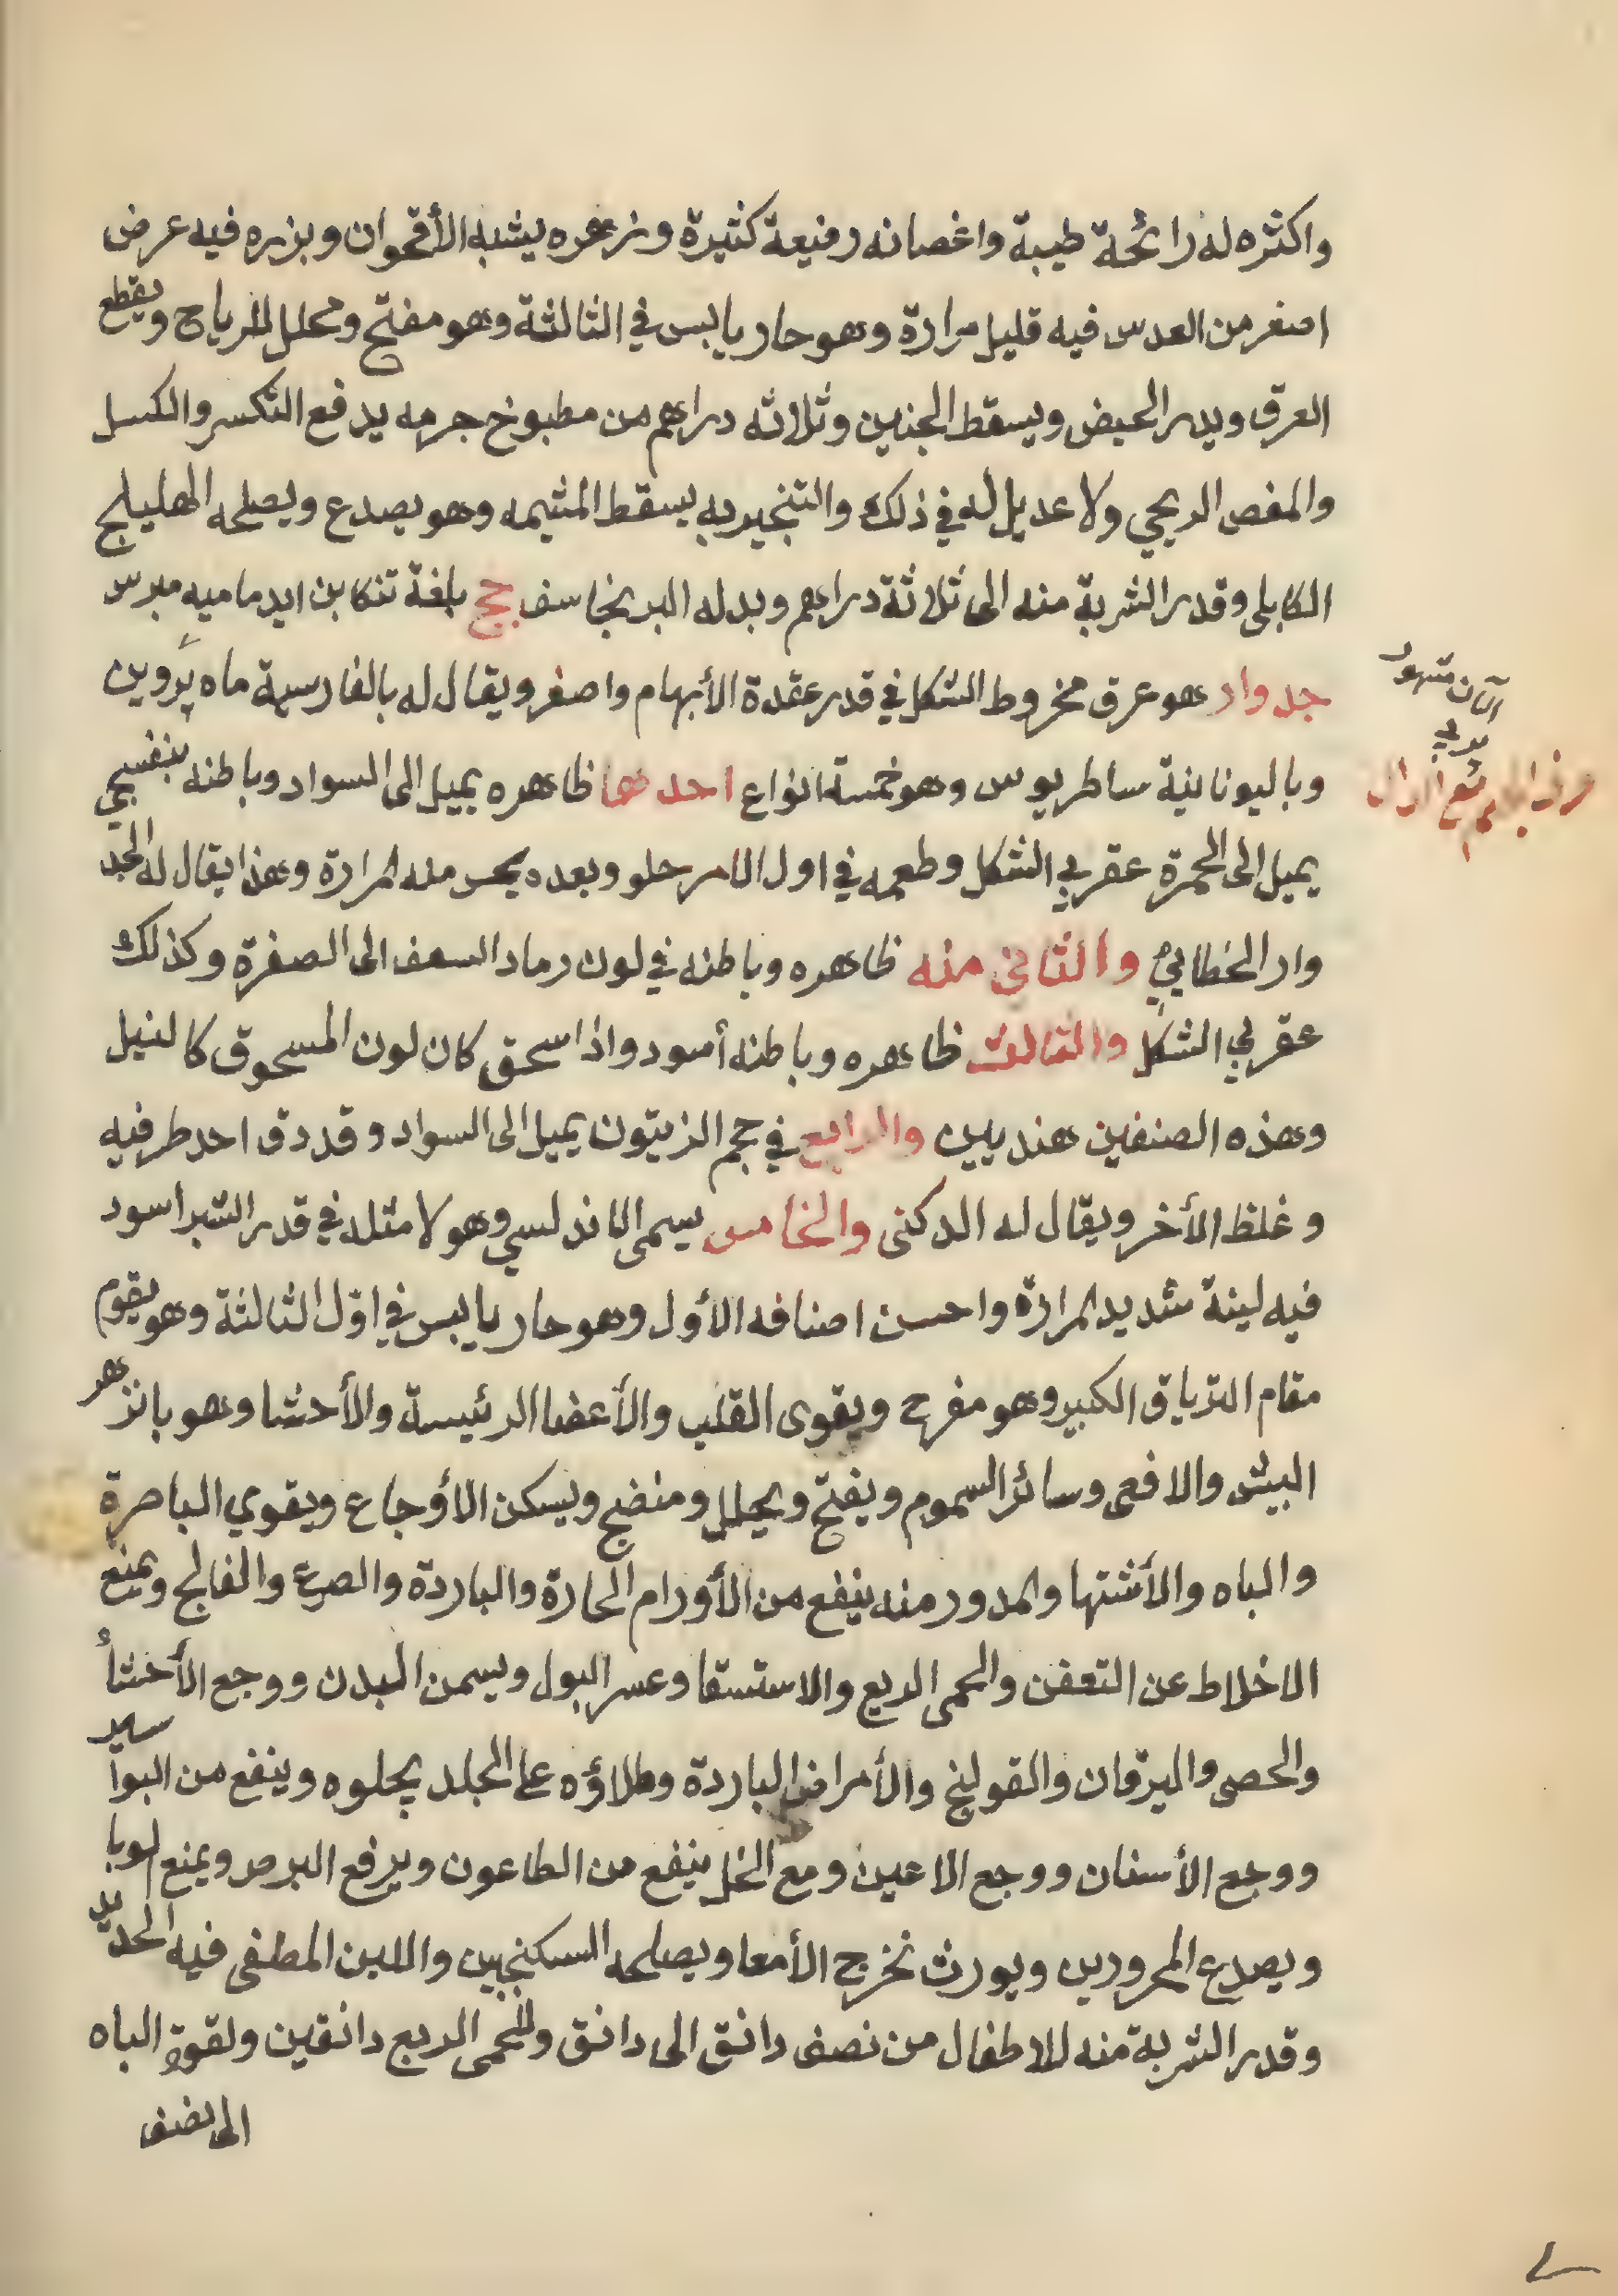 واكثره له رائحة طيبة واغصانه رفيعة كثيرة وزهره يشبه الأقحوان وبزره فيه عرض
اصغر من العدس فيه قليل مرارة وهو حار يابس في الثالثة وهو مفتح ومحلل للرياح ويقطع
العرق ويدر الحيض ويسقط الجنين وثلاثه دراهم من مطبوخ جرمه يدفع التكسر والكسل
والمغص الريحي ولا عديل له في ذلك والتبخير به يسقط المشيمه وهو يصدع ويصلحه الهليلج
الكابلى وقدر الشربة منه الى ثلاثة دراهم وبدله البرنجاسف جج بلغة تنكابن ايدماميه مبرس
جدوار هو عرق مخروط الشكل في قدر عقدة الأبهام واصغر ويقال له بالفارسية ماه پروين
وباليونانية ساطريوس وهو خمسة انواع احدها ظاهره يميل الى السواد وباطنه بنفسجي
يميل الى الحمرة عقربي الشكل وطعمه في اول الامر حلو وبعده يحس منه المرارة وهذا يقال له الجد
وار الخطايي والثاني منه ظاهره وباطنه في لون رماد السعف الى الصفرة وكذلك
عقربي الشكل والثالث ظاهره وباطنه أسود واذا سحق كان لون المسحوق كالنيل
وهذه الصنفين هنديين والرابع في حجم الزيتون يميل الى السواد وقد دق احد طرفيه
وغلظ الأخر ويقال له الدكنى والخامس يسمى الاندلسي وهو لا مثله في قدر الشبر اسود
فيه لينة شديد المرارة واحسن اصنافه الأول وهو حار يابس في اول الثالثة وهو يقوم
مقام الترياق الكبير وهو مفرح ويقوى القلب والأعضا الرئيسة والأحشا وهو بانزهر
البيش والافعى وسائر السموم ويفتح ويحلل ومنضج ويسكن الأوجاع ويقوي الباصرة
والباه والأشتها والمدور منه ينفع من الأورام الحارة والباردة والصرع والفالج ويمنع
الاخلاط عن التعفن والحمى الربع والاستسقا وعسر البول ويسمن البدن ووجع الأحشأ
والحصى واليرقان والقولنج والأمراض الباردة وطلاؤه على الجلد يجلوه وينفع من البواسير
ووجع الأسنان ووجع الاعين ومع الخل ينفع من الطاعون ويرفع البرص ويمنع الوبا
ويصدع المحرورين ويورث تخرج الأمعا ويصلحه السكنجبين واللبن المطفى فيه الحديد
وقدر الشربة منه للاطفال من نصف دانق الى دانق وللحمى الربع دانقين ولقوة الباه
الى نصف